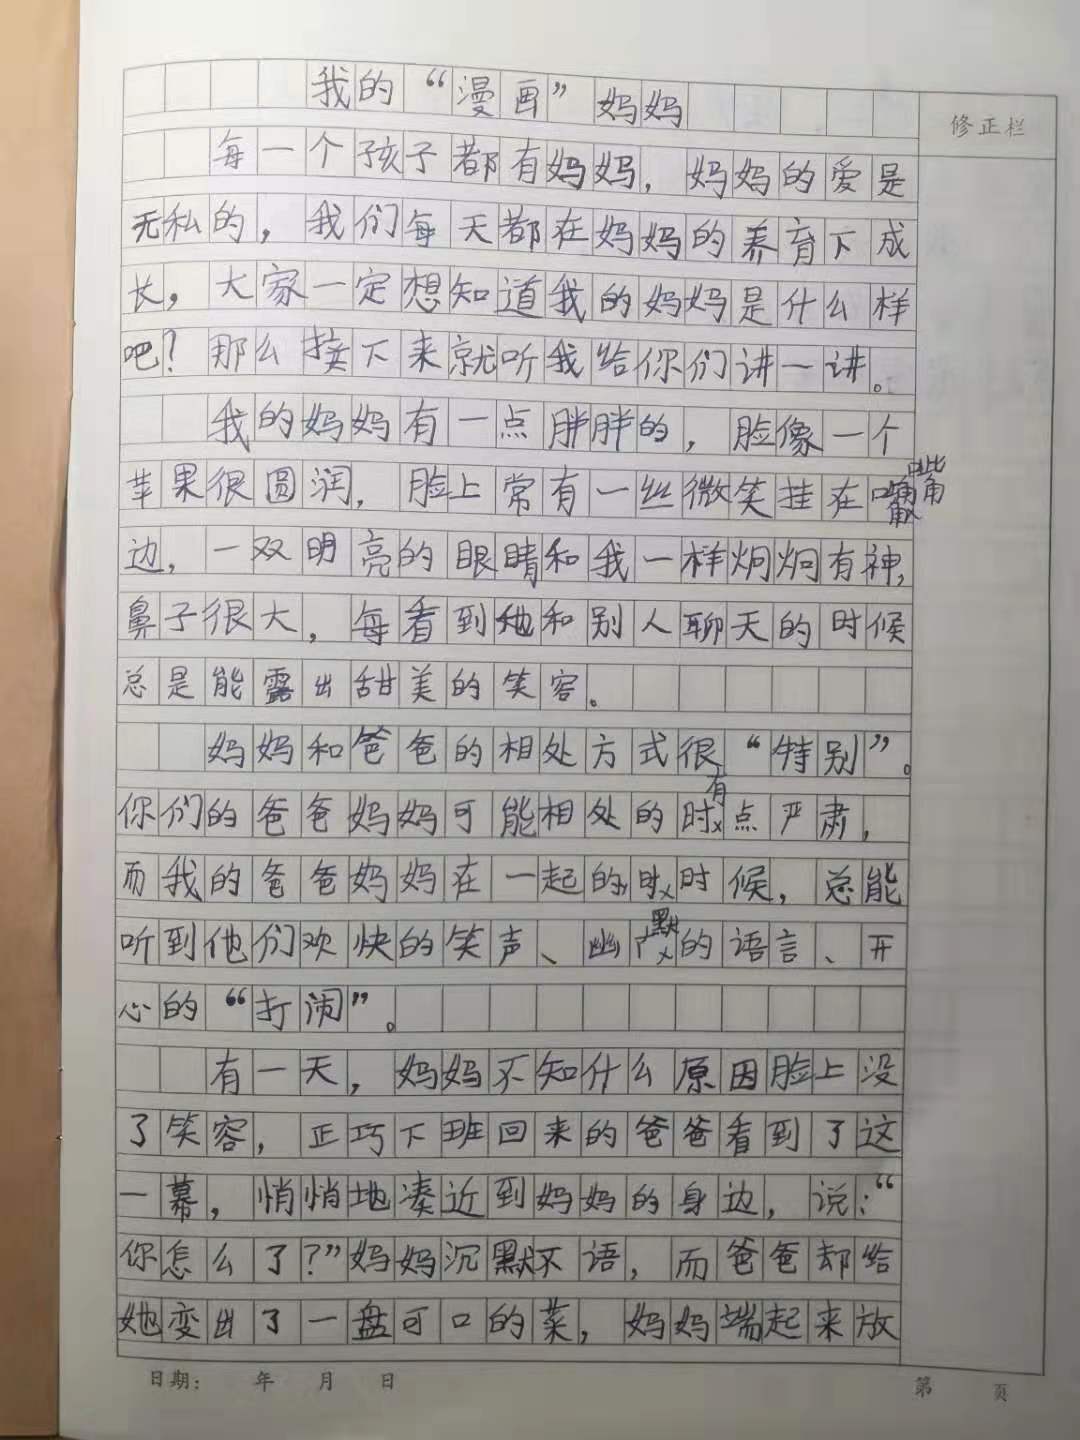 我的“漫画”妈妈
修正栏
每一个孩子都有妈妈，妈妈的爱是
无私的，我们每天都在妈妈的养育下成
长，大家一定想知道我的妈妈是什么样
吧？那么接下来就听我给你们讲一讲。
我的妈妈有一点胖胖的，脸像一个
苹果很圆润，脸上常有一丝微笑挂在嘴
边，一双明亮的眼睛和我一样炯炯有神，
鼻子很大，每看到她和别人聊天的时候
总是能露出甜美的笑容。
妈妈和爸爸的相处方式很“特别”。
你们的爸爸妈妈可能相处的时有点严肃，
而我的爸爸妈妈在一起的时候，总能
听到他们欢快的笑声、幽默的语言、开
心的“打闹”。
有一天，妈妈不知什么原因脸上没
了笑容，正巧下班回来的爸爸看到了这
一幕，悄悄地凑近到妈妈的身边，说：“
你怎么了？”妈妈沉默不语，而爸爸却给
她变出了一盘可口的菜，妈妈端起来放
日期： 年 月 日
第 页